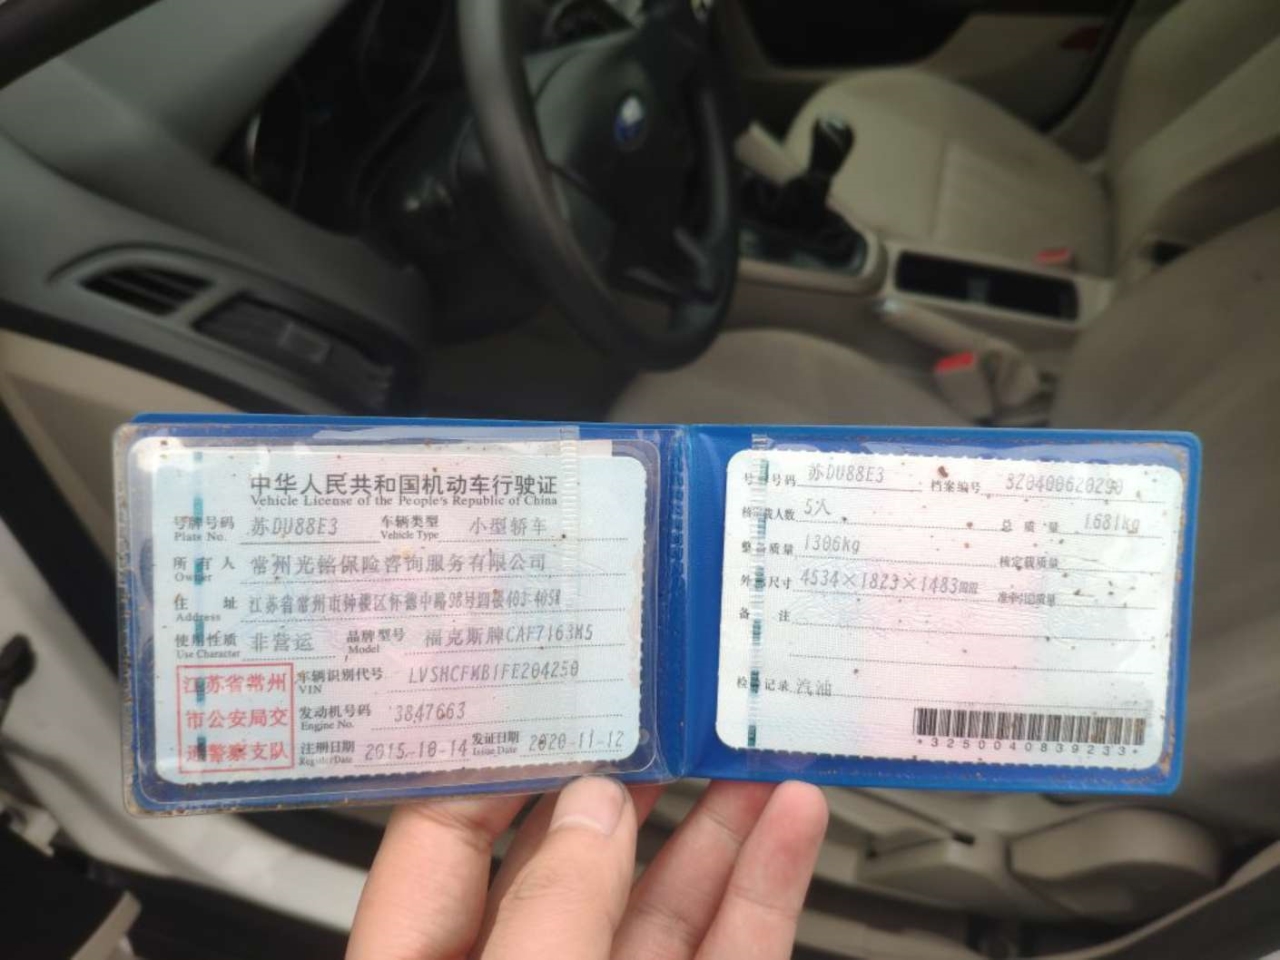 中华人民共和国机动车行驶证
Vehicle License of the People's Republic of China
号牌号码 苏DU88E3 车辆类型 小型轿车
Plate No. Vehicle Type
所有人 常州光铭保险咨询服务有限公司
Owner
住 址 江苏省常州市钟楼区怀德中路98号四楼403-405A
Address
使用性质 非营运 品牌型号 福克斯牌CAF7163M5
Use Character Model
江苏省常州
市公安局交
通警察支队
车辆识别代号 LVSHCFMB1FE204250
VIN
发动机号码 3847663
Engine No.
注册日期 2015-10-14 发证日期 2020-11-12
Register Date Issue Date
号牌号码 苏DU88E3 档案编号 320400620290
核定载人数 5人 总质量 1681kg
整备质量 1306kg 核定载质量
外廓尺寸 4534×1823×1483mm 准牵引总质量
备 注
检验记录 汽油
*3250040839233*